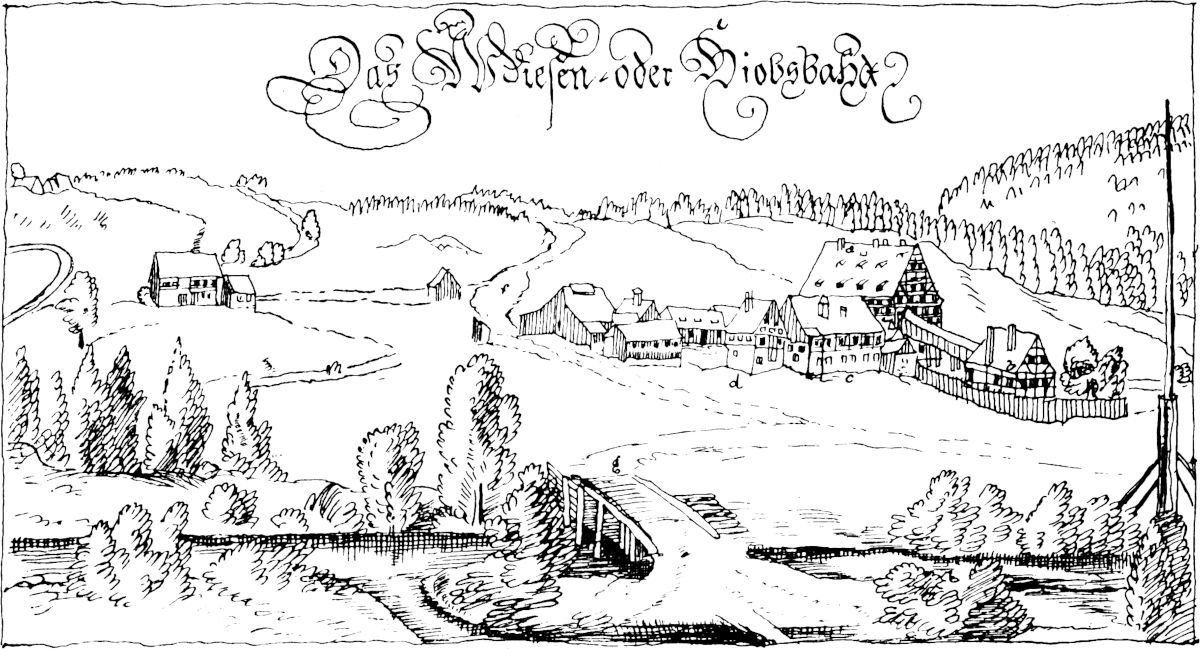 Das Wiesen-oder Hiobsbahd
a
f
b
d
c
g